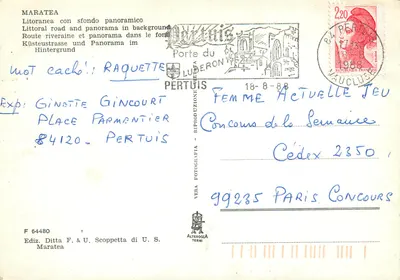 MARATEA
Litoranea con sfondo panoramico
Littoral road and panorama in background
Route riveraine et panorama dans le fond
Küstenstrasse und Panorama im
Hintergrund
mot caché: RAQUETTE
Exp: GINETTE GINCOURT
PLACE PARMENTIER
84120. PERTUIS
F 64480
Ediz. Ditta F. & U. Scoppetta di U. S.
Maratea
VERA FOTOGRAFIA
Pertuis
Porte du
LUBERON
PERTUIS
18-8-88
2,20
84 PERTUIS
1988
VAUCLUSE
FEMME ACTUELLE JEU
Concours de la Semaine
Cédex 2350
99235 PARIS CONCOURS